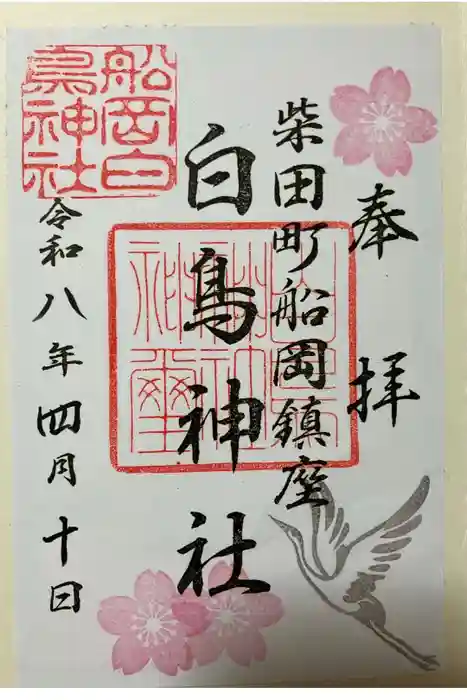 奉拝
柴田町船岡鎮座
白鳥神社
船岡白
鳥神社
令和八年四月十日